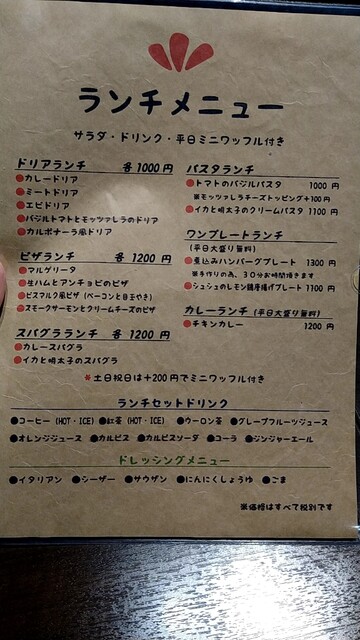 ランチメニュー
サラダ・ドリンク・平日ミニワッフル付き
ドリアランチ 各1000円
●カレードリア
●ミートドリア
●エビドリア
●バジルトマトとモッツァレラのドリア
●カルボナーラ風ドリア
ピザランチ 各1200円
●マルゲリータ
●生ハムとアンチョビのピザ
●ビスマルク風ピザ (ベーコンと目玉やき)
●スモークサーモンとクリームチーズのピザ
スパグラランチ 各1200円
●カレースパグラ
●イカと明太子のスパグラ
パスタランチ
●トマトのバジルパスタ 1000円
※モッツァレラチーズトッピング+100円
●イカと明太子のクリームパスタ 1100円
ワンプレートランチ
(平日大盛り無料)
●煮込みハンバーグプレート 1300円
※手作りの為、30分お時間頂きます
●シュシュのレモン鶏唐揚げプレート 1100円
カレーランチ (平日大盛り無料)
●チキンカレー 1200円
*土日祝日は+200円でミニワッフル付き
ランチセットドリンク
●コーヒー (HOT・ICE) ●紅茶 (HOT・ICE) ●ウーロン茶 ●グレープフルーツジュース
●オレンジジュース ●カルピス ●カルピスソーダ ●コーラ ●ジンジャーエール
ドレッシングメニュー
●イタリアン ●シーザー ●サウザン ●にんにくしょうゆ ●ごま
※価格はすべて税別です